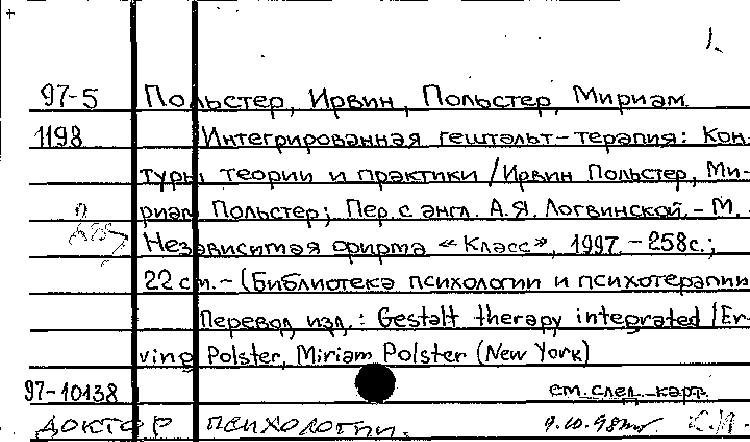 1.
97-5 Польстер, Ирвин, Польстер, Мириам
1198 Интегрированная гештальт-терапия: Кон-
туры теории и практики / Ирвин Польстер, Ми-
риам Польстер; Пер. с англ. А.Я. Логвинской. - М.
Независимая фирма «Класс», 1997. - 258с.;
22 см. - (Библиотека психологии и психотерапии
Перевод изд.: Gestalt therapy integrated / Er-
ving Polster, Miriam Polster (New York)
97-10138 см. след. карт.
доктор психологии. 9.10.98